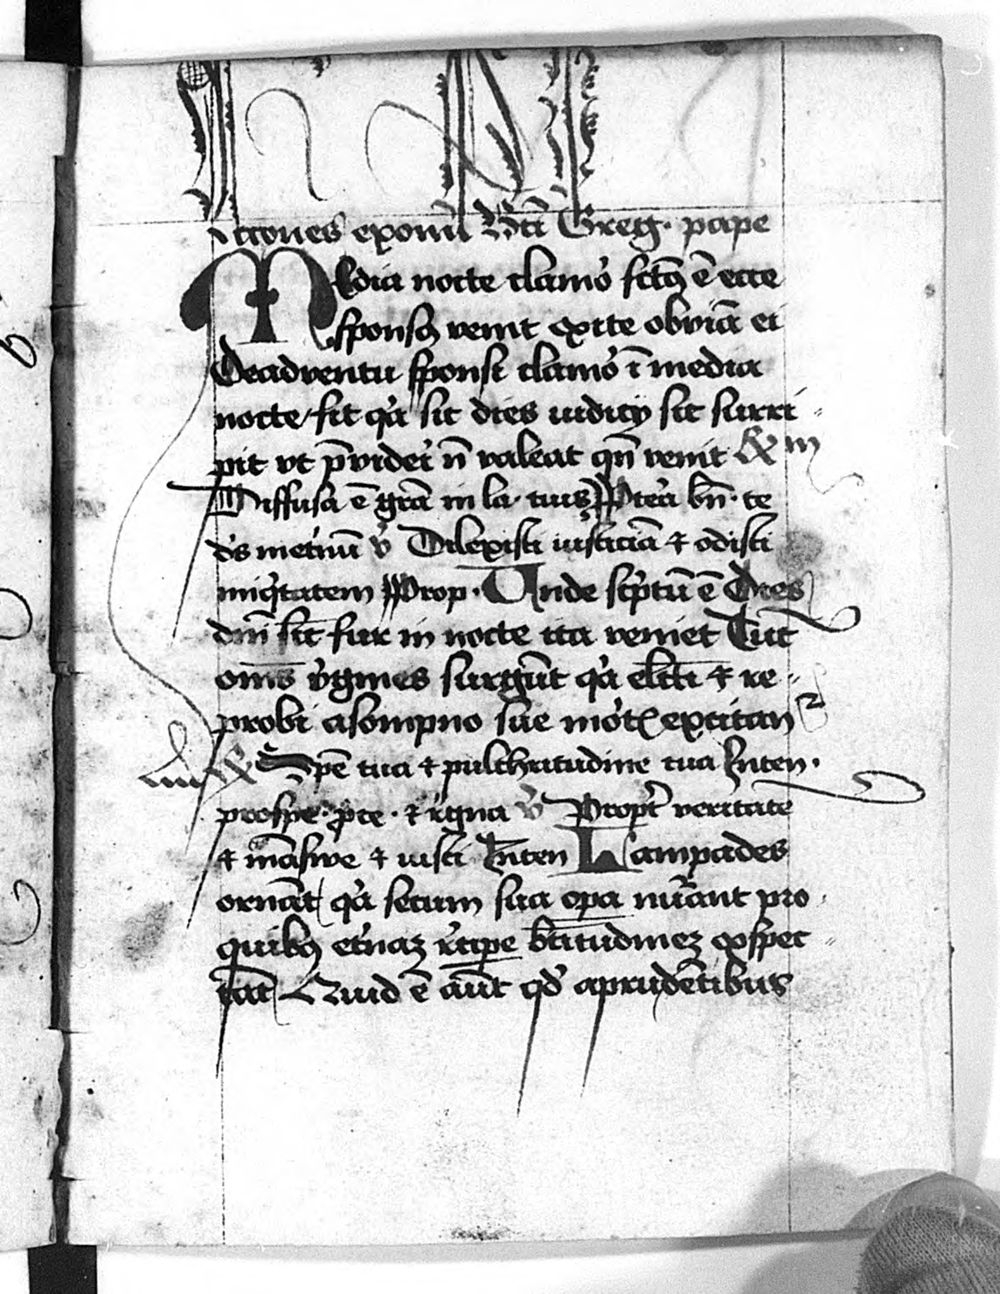 Lectiones exomīī Bēti Greg. pape
Media nocte clamor sctꝰ ē ecce
sponsꝰ venit exite obviā ei
De adventu sponsi clamor ī media
nocte fit qꝛ sic dies iudicij sic surri
pit vt p̄videri n̄ valeat qn̄ venit Rm
Diffusa ē grā in la. tuis Ppterea bn̄. te
ds met̄nū v̄ Dilexisti iusticiā ⁊ odisti
iniqtatem Prop. Unde scptū ē Dies
dnī sic fur in nocte ita veniet Tūc
oms v̄gines surgūt qꝛ elcti ⁊ re
probi a sompno sue mortꝭ excitan
R Spē tua ⁊ pulchritudine tua Inten.
prospe. pce. ⁊ regna v̄ Propt veritate
⁊ māswe ⁊ iusti Inten Lampades
ornāt qꝛ secum sua opa nūant pro
quibꝰ etnaꝫ recipe btitudineꝫ exspec
tāt Quid ē aūt qd a prudētibus